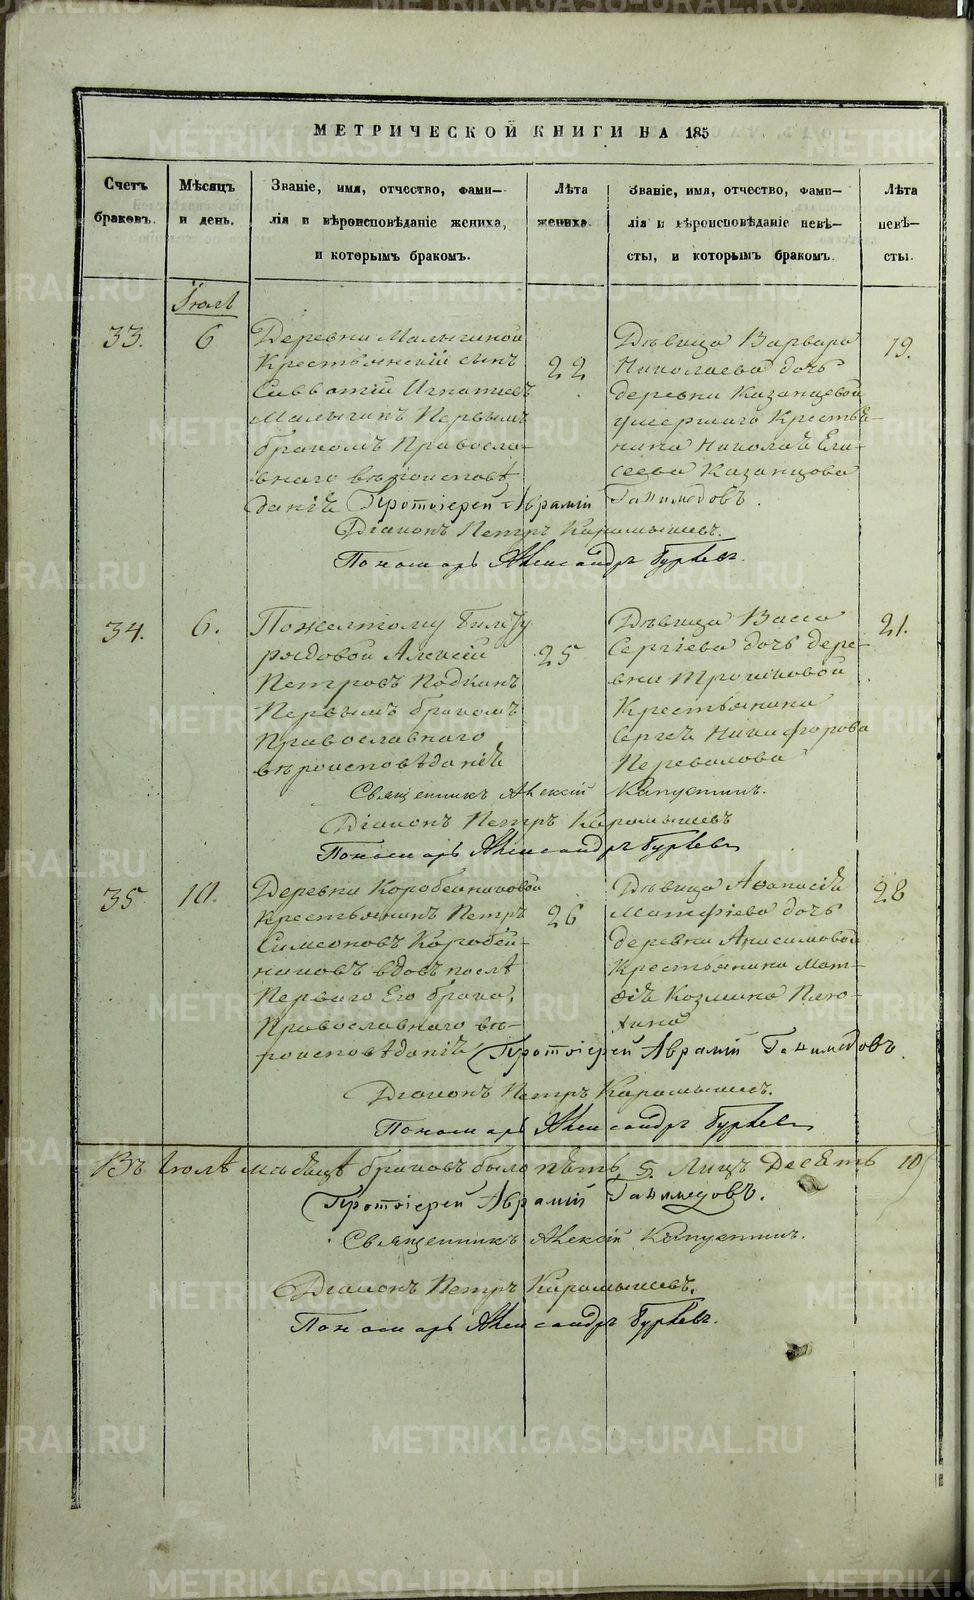 МЕТРИЧЕСКОЙ КНИГИ НА 185
Счетъ браковъ.
Мѣсяцъ и день.
Званіе, имя, отчество, фами-
лія и вѣроисповѣданіе жениха,
и которымъ бракомъ.
Лѣта жениха.
Званіе, имя, отчество, фами-
лія и вѣроисповѣданіе невѣ-
сты, и которымъ бракомъ.
Лѣта невѣ-
сты.
Іюль
33.
6
Деревни Малыгиной
Крестьянскій сынъ
Савватій Игнатьевъ
Малыгинъ Первымъ
бракомъ Правосла-
внаго вѣроисповѣ
данія
22
Дѣвица Варвара
Николаева дочь
деревни Казанцевой
умершаго Крестья-
нина Николая Ели-
сеева Казанцова
19.
Протоіерей Аврамій Ганимедовъ.
Діаконъ Петръ Карамышевъ.
Пономарь Александръ Гурьевъ.
34.
6.
Пожелтому билету
рядовой Алексій
Петровъ Подкинъ
Первымъ бракомъ
Православнаго
вѣроисповѣданія
25
Дѣвица Васса
Сергіева дочь дере-
вни Трошковой
Крестьянина
Сергея Никифорова
Перевалова
21.
Священникъ Алексій Капустинъ.
Діаконъ Петръ Карамышевъ
Пономарь Александръ Гурьевъ
35
10.
Деревни Коробейниковой
Крестьянинъ Петръ
Симеоновъ Коробей-
никовъ вдовъ послѣ
Перваго Его брака,
Православнаго вѣ-
роисповѣданія
26
Дѣвица Афанасія
Матфіева дочь
деревни Анисимовой
Крестьянина Мат-
фія Козмина Плю-
хина
28
Протоіерей Аврамій Ганимедовъ.
Діаконъ Петръ Карамышевъ.
Пономарь Александръ Гурьевъ
Въ Іюлѣ мѣсяцѣ браковъ было пять 5. Лицъ Десять 10
Протоіерей Аврамій Ганимедовъ.
Священникъ Алексій Капустинъ.
Діаконъ Петръ Карамышевъ.
Пономарь Александръ Гурьевъ.
METRIKI.GASO-URAL.RU